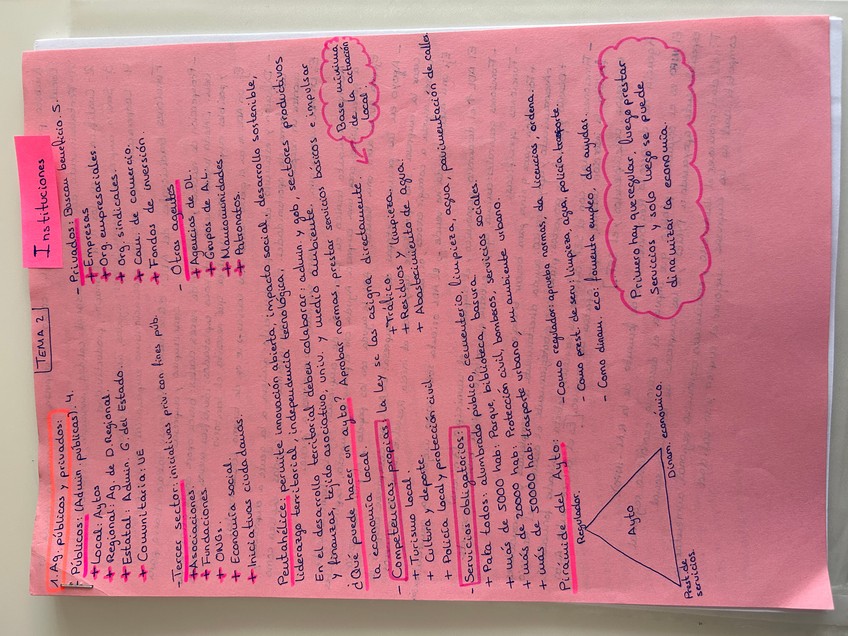 TEMA 2
Instituciones
1. Ag. públicos y privados:
- Públicos: (Admin. públicas). 4.
+ Local: Aytos
+ Regional: Ag de D. Regional.
+ Estatal: Admin. G. del Estado.
+ Comunitaria: UE
- Privados: Buscan beneficio. S.
+ Empresas
+ Org. empresariales.
+ Org. sindicales.
+ Cam. de comercio.
+ Fondos de inversión
- Tercer sector: iniciativas priv. con fines púb.
+ Asociaciones
+ Fundaciones
+ ONGs.
+ Economía social.
+ Iniciativas ciudadanas.
- Otros agentes
+ Agencias de DL.
+ Grupos de A.L.
+ Mancomunidades
+ Patronatos.
Pentahélice: permite innovación abierta, impacto social, desarrollo sostenible,
liderazgo territorial, independencia tecnológica.
En el desarrollo territorial deben colaborar: admin y gob, sectores productivos
y finanzas, tejido asociativo, univ. y medio ambiente.
¿Qué puede hacer un ayto? Aprobar normas, prestar servicios básicos e impulsar
la economía local.
Base mínima
de la actuación
local.
- Competencias propias: la ley se las asigna directamente.
+ Turismo local
+ Cultura y deporte.
+ Policía local y protección civil.
+ Tráfico.
+ Residuos y limpieza.
+ Abastecimiento de agua.
- Servicios obligatorios:
+ Para todos: alumbrado público, cementerio, limpieza, agua, pavimentación de calles
+ más de 5000 hab: Parque, biblioteca, basura.
+ más de 20000 hab: Protección civil, bomberos, servicios sociales.
+ más de 50000 hab: trasporte urbano, m. ambiente urbano.
Pirámide del Ayto:
Regulador.
Ayto
Prest. de
servicios.
Dinam. económico.
- Como regulador: aprueba normas, da licencias, ordena.
- Como prest. de serv: limpieza, agua, policía, trasporte.
- Como dinam. eco: fomenta empleo, da ayudas.
Primero hay que regular, luego prestar
servicios y solo luego se puede
dinamizar la economía.